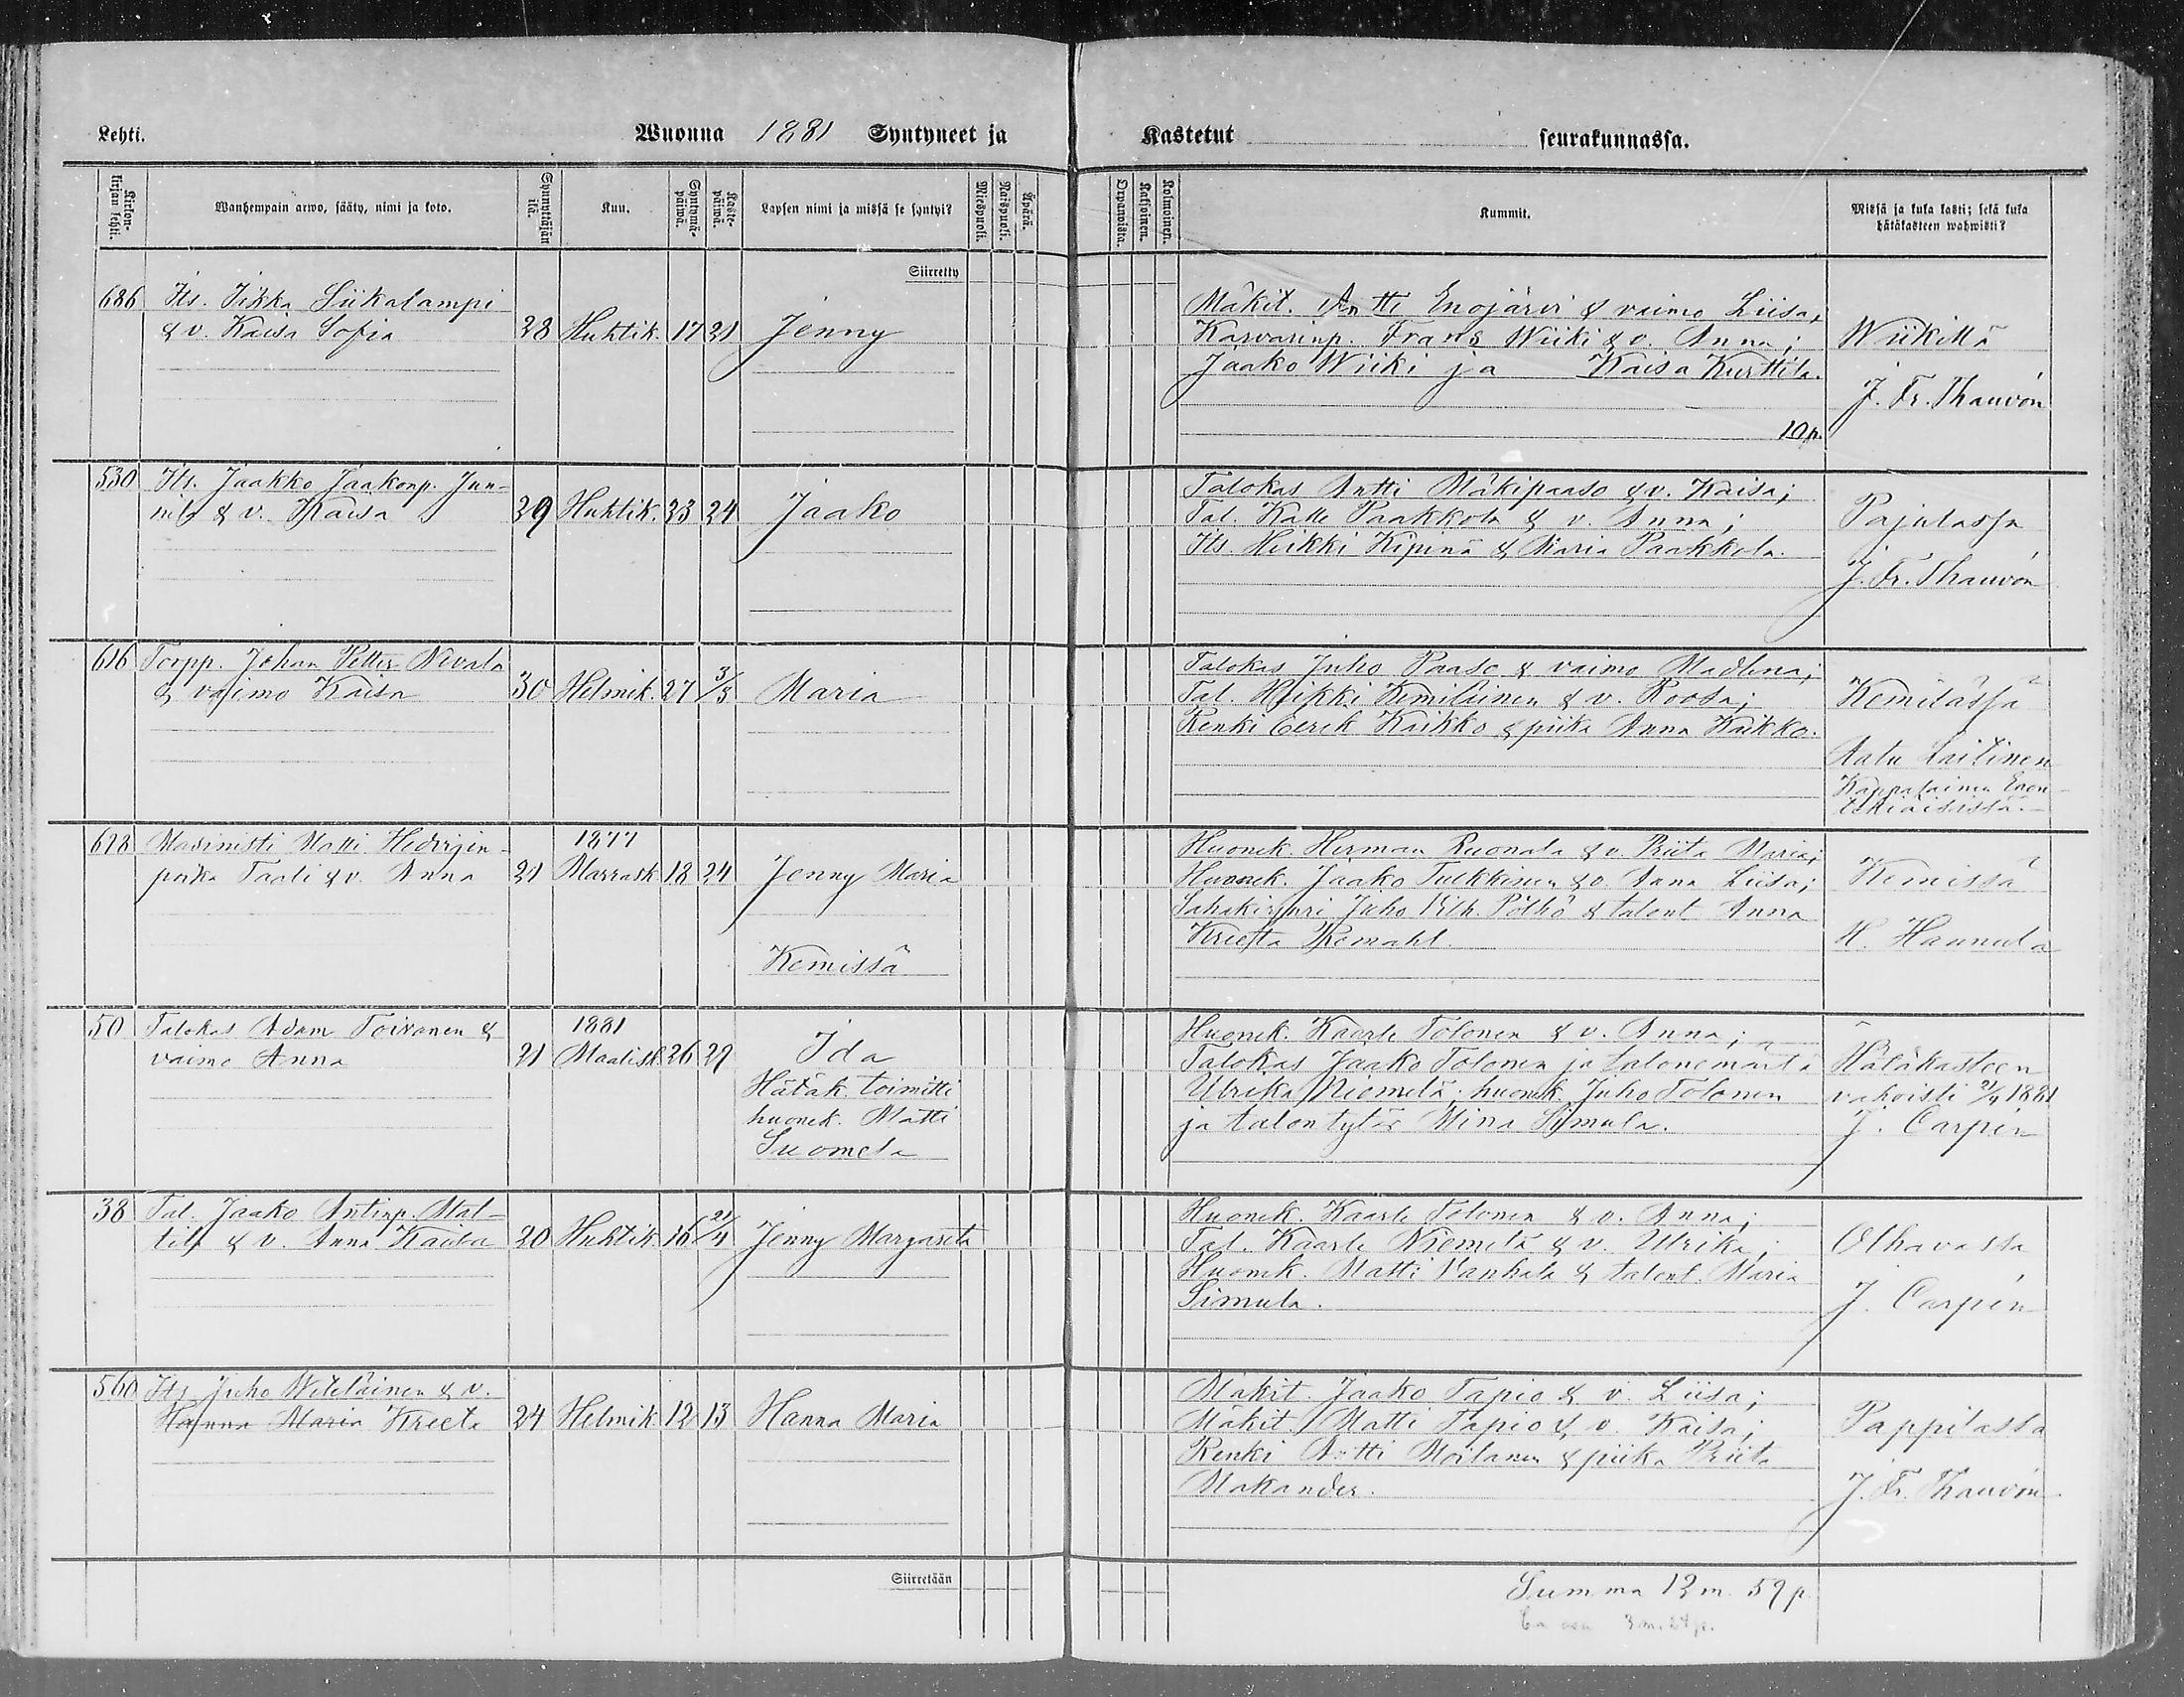 Lehti.
Wuonna 1881 Syntyneet ja
Kastetut seurakunnassa.
Kirkon-
kirjan lehti.
Wanhempain arwo, sääty, nimi ja koto.
Synnyttäjän
ikä.
Kuu.
Syntymä-
päiwä.
Kaste-
päiwä.
Lapsen nimi ja missä se syntyi?
Miespuoli.
Naispuoli.
Äpärä.
Orpanoista.
Kaksoinen.
Kolmoinen.
Kummit.
Missä ja kuka kasti; sekä kuka
hätäkasteen wahwisti?
Siirretty
686 Its. Iikka Siikalampi
& v. Kaisa Sofia 28 Huhtik. 17 21 Jenny
Mäkit. Antti Enojärvi & vaimo Liisa,
Karvarinp. Frans Wiiki & v. Anna;
Jaako Wiiki ja Kaisa Kurttila.
10 p.
Wiikillä
J. Fr. Thauvón
530 Its. Jaakko Jaakonp. Jun-
nila & v. Kaisa 39 Huhtik. 23 24 Jaako
Talokas Antti Mäkipaaso & v. Kaisa;
Tal. Kalle Paakkola & v. Anna;
Its. Heikki Kipinä & Maria Paakkola.
Pajulassa
J. Fr. Thauvón
616 Torpp. Johan Petter Nevala
& vaimo Kaisa 30 Helmik. 27 3/3 Maria
Talokas Juho Paaso & vaimo Madlena;
Tal. Heikki Kemiläinen & v. Roosa;
Renki Eerek Kaikko & piika Anna Kaikko.
Kemilässä
Aatu Laitinen
Kappalainen Enon-
tekiäisissä.
618 Masinisti Matti Hedrijin-
poika Taali & v. Anna 21 1877
Marrask 18 24 Jenny Maria
Kemissä
Huonek. Herman Ruonala & v. Priita Maria;
Huonek. Jaako Tulkkinen & v. Anna Liisa;
Juho Vilh. Pölhö & talont. Anna
Kreeta Remahl.
Kemissä
H. Hannula
50 Talokas Adam Toivanen &
vaimo Anna 21 1881
Maalisk. 26 29 Ida
Hätäk. toimitti
huonek. Matti
Suomela
Huonek. Kaarle Tolonen & v. Anna;
Talokas Jaako Tolonen ja talonemäntä
Ulrika Niemelä; huonek. Juho Tolonen
ja talontytär Mina Simula.
Hätäkasteen
vahvisti 21/4 1881
J. Carpén
38 Tal. Jaako Antinp. Mat-
tila & v. Anna Kaisa 20 Huhtik. 16 21/4 Jenny Margareta
Huonek. Kaarle Tolonen & v. Anna;
Tal. Kaarle Niemelä & v. Ulrika;
Huonek. Matti Vanhala & talont. Maria
Simula.
Olhavassa
J. Carpén
560 Its Juho Weteläinen & v.
Hanna Maria Kreeta 24 Helmik. 12 13 Hanna Maria
Mäkit. Jaako Tapio & v. Liisa;
Mäkit. Matti Tapio & v. Kaisa;
Renki Antti Moilanen & piika Priita
Makander.
Pappilassa
J. Fr. Thauvón
Siirretään
Summa 12 m. 59 p.
3 m. 24 p.